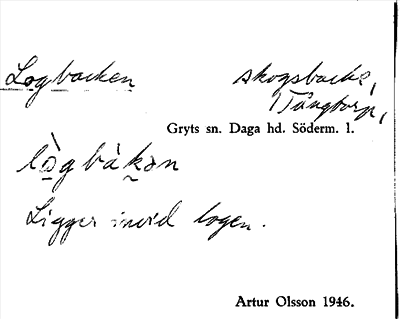 Logbacken skogsbacke,
Tångtorp,
Gryts sn. Daga hd. Söderm. l.
lò̱gbàḵən
Ligger invid logen.
Artur Olsson 1946.